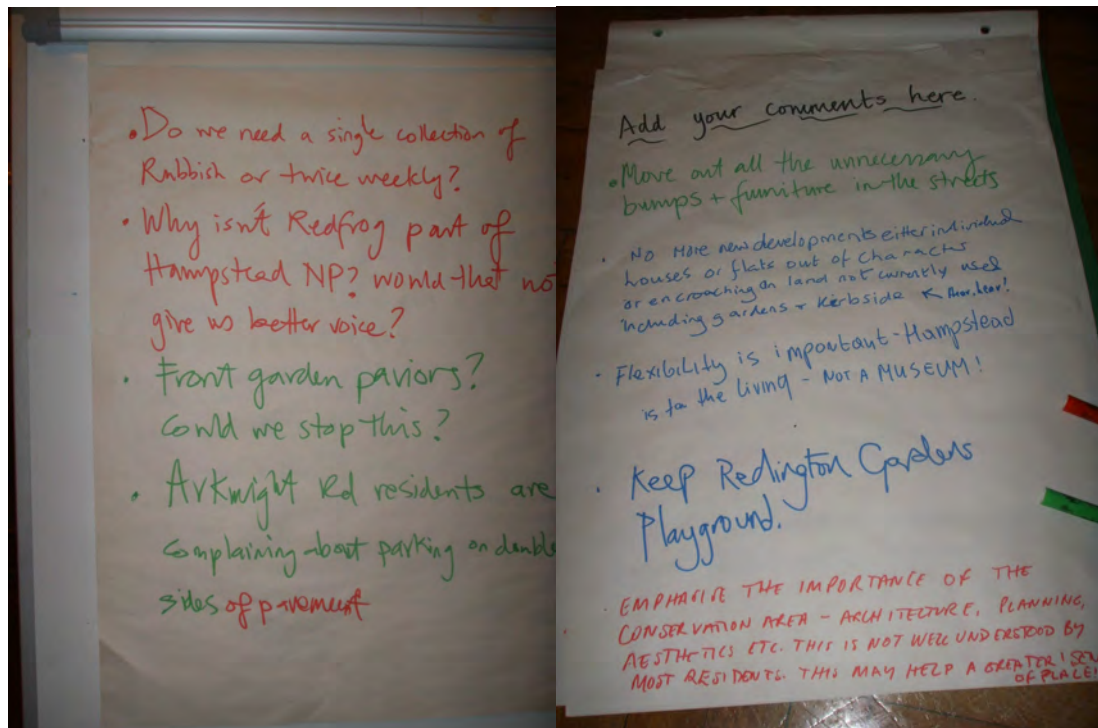 • Do we need a single collection of
Rubbish or twice weekly?
• Why isn't Redfrog part of
Hampstead NP? would that no
give us better voice?
• Front garden paviors?
Could we stop this?
• Arkwright Rd residents are
complaining about parking on double
sides of pavement
Add your comments here.
• Move out all the unnecessary
bumps + furniture in the streets
• No More new developments either individual
houses or flats out of character
or encroaching on land not currently used
including gardens + kerbside ↖ Hear, hear!
• Flexibility is important - Hampstead
is for the living - NOT A MUSEUM!
• Keep Redington Gardens
Playground.
• EMPHASISE THE IMPORTANCE OF THE
CONSERVATION AREA - ARCHITECTURE, PLANNING,
AESTHETICS ETC. THIS IS NOT WELL UNDERSTOOD BY
MOST RESIDENTS. THIS MAY HELP A GREATER 'SEN
OF PLACE'